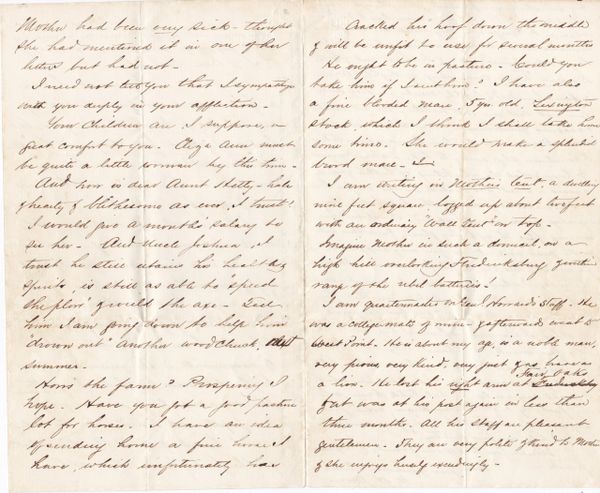 Mother had been very sick - thought
she had mentioned it in one of her
letters but had not -
I need not tell you that I sympathise
with you deeply in your affliction -
Your Children are I suppose, a
great comfort to you. Eliza Ann must
be quite a little woman by this time -
And how is dear Aunt Hatty - hale
& hearty & blithesome as ever, I trust!
I would give a month's salary to
see her - And Uncle Joshua, I
trust he still retains his healthy
spirits, is still as able to "speed
the plow" & wield the axe - Tell
him I am going down to help him
"drown out" another wood chuck, next
summer -
How's the farm? Prosperous I
hope - Have you got a good pasture
lot for horses. I have an idea
of sending home a fine horse I
have, which unfortunately has
cracked his hoof down the middle
& will be unfit to use for several months
He ought to be in pasture - Could you
take him if I sent him? I have also
a fine blooded mare, 5 yrs old, Lexington
stock which I think I shall take home
some time. She would make a splendid
brood mare -
I am writing in Mother's tent, a dwelling
nine feet square logged up about two feet
with an ordinary "Wall tent" on top -
Imagine Mother in such a domicil, on a
high hill overlooking Fredericksburg, within
range of the rebel batteries!
I am quartermaster on Genl Howard's Staff. He
was a college mate of mine - & afterward went to
West Point. He is about my age, is a noble man,
very pious, very kind, very just & as brave as
a lion. He lost his right arm at Fair Oaks
& yet was at his post again in less than
three months. All his staff are pleasant
gentlemen. They are very polite & kind to Mother
& she enjoys herself exceedingly -